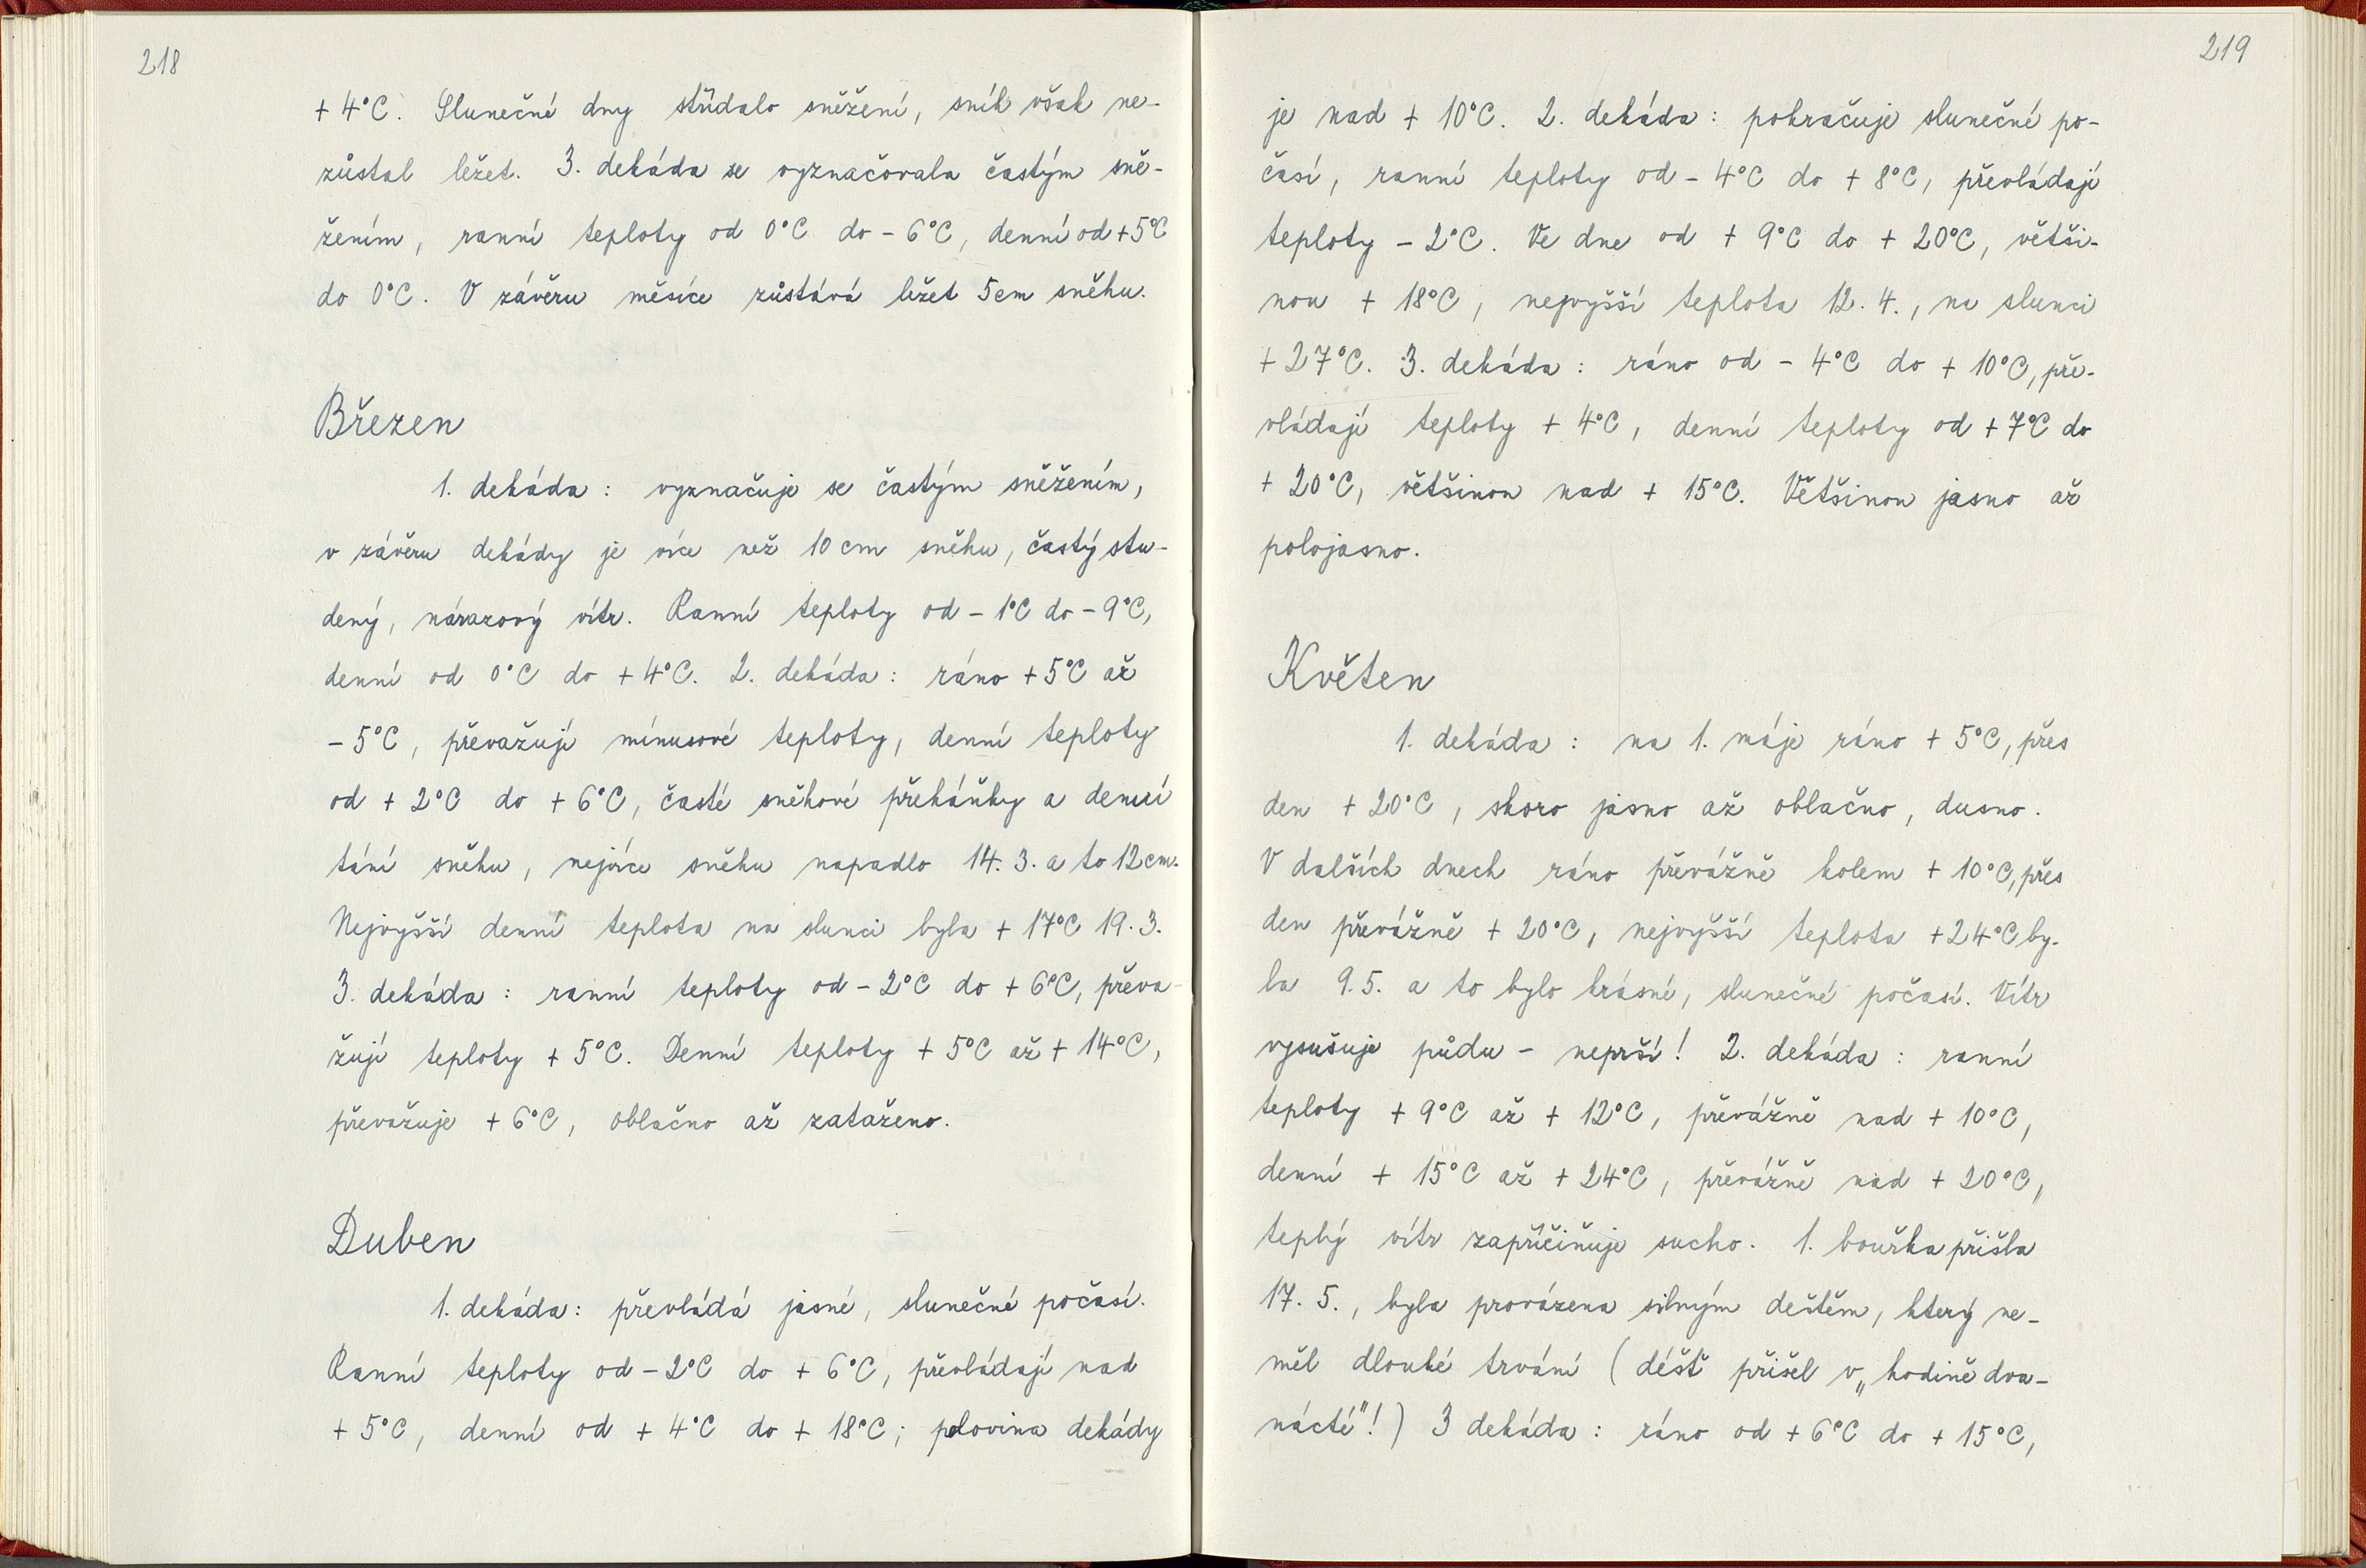 218
+ 4°C. Slunečné dny střídalo sněžení, sníh však ne-
zůstal ležet. 3. dekáda se vyznačovala častým sně-
žením, ranní teploty od 0°C do - 6°C, denní od +5°C
do 0°C. V závěru měsíce zůstává ležet 5cm sněhu.
Březen
1. dekáda : vyznačuje se častým sněžením,
v závěru dekády je více než 10 cm sněhu, častý stu-
dený, nárazový vítr. Ranní teploty od - 1°C do - 9°C,
denní od 0°C do + 4°C. 2. dekáda : ráno + 5°C až
- 5°C, převažují mínusové teploty, denní teploty
od + 2°C do + 6°C, časté sněhové přeháňky a denní
tání sněhu, nejvíce sněhu napadlo 14. 3. a to 12cm.
Nejvyšší denní teplota na slunci byla + 17°C 19. 3.
3. dekáda : ranní teploty od - 2°C do + 6°C, převa-
žují teploty + 5°C. Denní teploty + 5°C až + 14°C,
převažuje + 6°C, oblačno až zataženo.
Duben
1. dekáda: převládá jasné, slunečné počasí.
Ranní teploty od - 2°C do + 6°C, převládají nad
+ 5°C, denní od + 4°C do + 18°C; polovina dekády
219
je nad + 10°C. 2. dekáda : pokračuje slunečné po-
časí, ranní teploty od - 4°C do + 8°C, převládají
teploty - 2°C. Ve dne od + 9°C do + 20°C, větši-
nou + 18°C, nejvyšší teplota 12. 4., na slunci
+ 27°C. 3. dekáda : ráno od - 4°C do + 10°C, pře-
vládají teploty + 4°C, denní teploty od + 7°C do
+ 20°C, většinou nad + 15°C. Většinou jasno až
polojasno.
Květen
1. dekáda : na 1. máje ráno + 5°C, přes
den + 20°C, skoro jasno až oblačno, dusno.
V dalších dnech ráno převážně kolem + 10°C, přes
den převážně + 20°C, nejvyšší teplota +24°C by-
la 9. 5. a to bylo krásné, slunečné počasí. Vítr
vysušuje půdu - neprší! 2. dekáda : ranní
teploty + 9°C až + 12°C, převážně nad + 10°C,
denní + 15°C až + 24°C, převážně nad + 20°C,
teplý vítr zapříčiňuje sucho. 1. bouřka přišla
17. 5., byla provázena silným deštěm, který ne-
měl dlouhé trvání (déšť přišel v „hodině dva-
nácté"!) 3 dekáda : ráno od + 6°C do + 15°C,